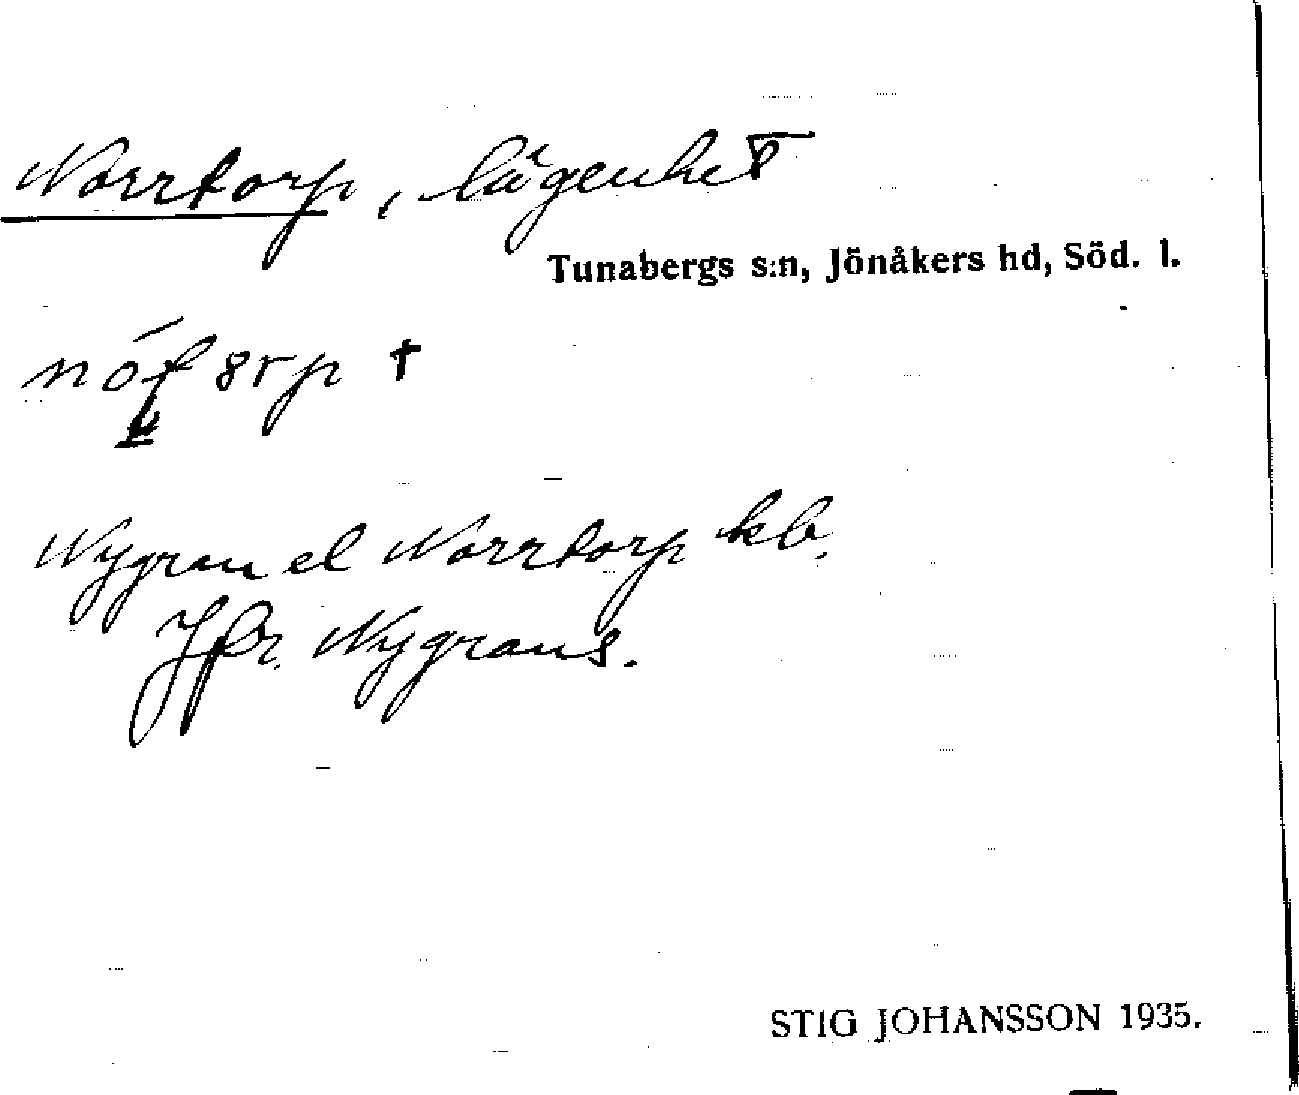 Norrtorp, lägenhet
Tunabergs s:n, Jönåkers hd, Söd. l.
†
Nygran el Norrtorp kb.
Jfr. Nygrans.
STIG JOHANSSON 1935.